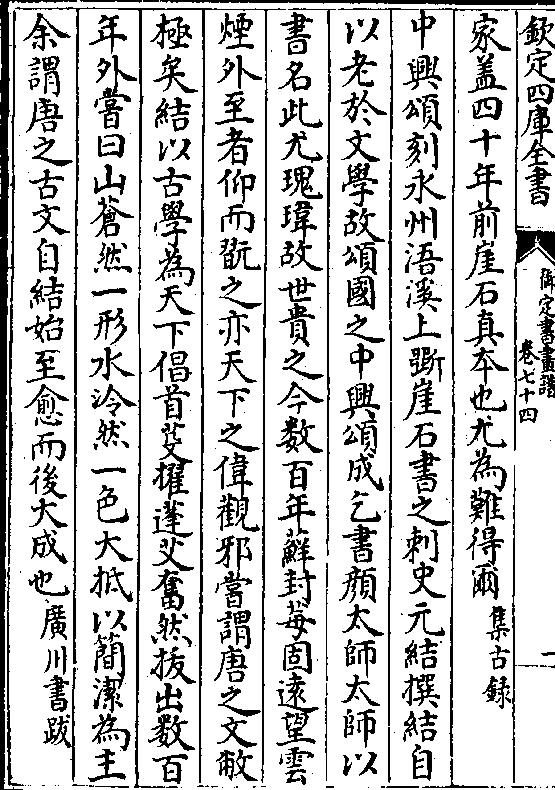 欽定四庫全書
御定書畫譜
卷七十四
一
家葢四十年前崖石真本也尤為難得爾集古録
中興頌刻永州浯溪上斲崖石書之刺史元結撰結自
以老於文學故頌國之中興頌成乞書顔太師太師以
書名此尤瑰瑋故世貴之今数百年蘚封莓固遠望雲
煙外至者仰而翫之亦天下之偉觀邪嘗謂唐之文敝
極矣結以古學為天下倡首芟擢蓬艾奮然拔出数百
年外嘗曰山蒼然一形水泠然一色大抵以簡潔為主
余謂唐之古文自結始至愈而後大成也廣川書跋